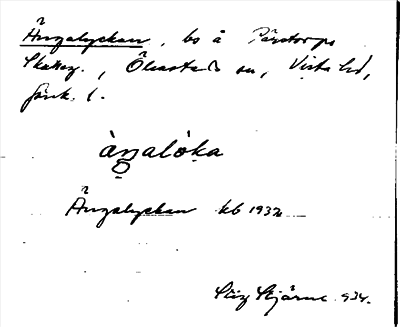 Ängalyckan, bs å Perstorps
Skatteg., Ölmstads sn, Vista hd,
Jönk. l.
àŋalòka
Ängalyckan kb 1932
Stig Stjärne 934.